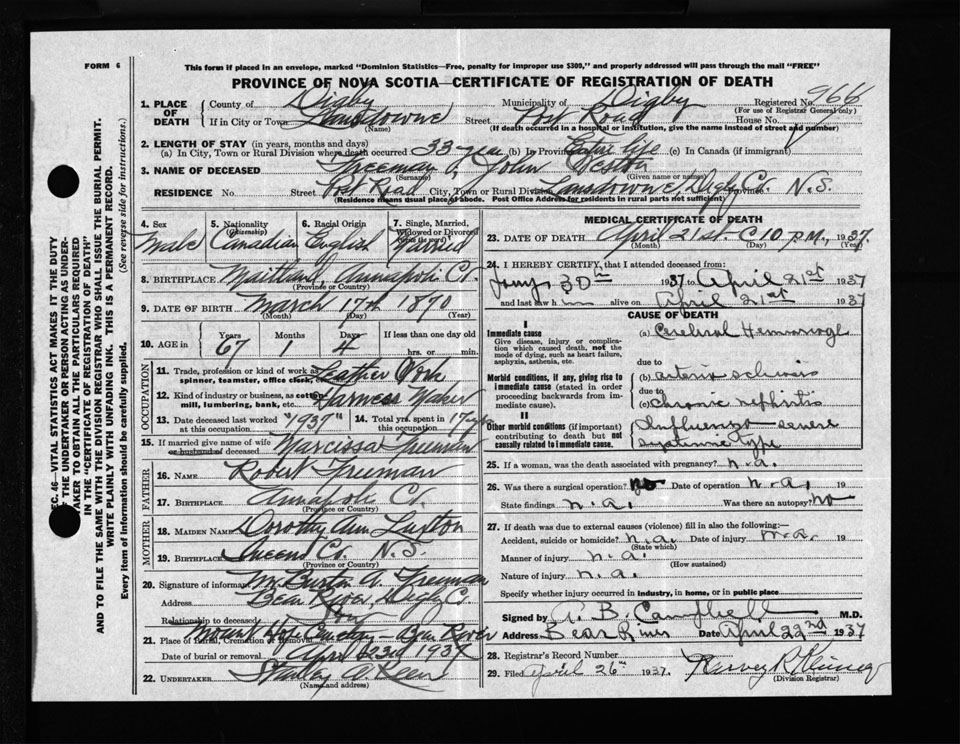 FORM 6
This form if placed in an envelope, marked "Dominion Statistics—Free, penalty for improper use $300," and properly addressed will pass through the mail "FREE"
PROVINCE OF NOVA SCOTIA—CERTIFICATE OF REGISTRATION OF DEATH
1. PLACE OF DEATH County of Digby Municipality of Digby Registered No. 964
(For use of Registrar General only)
If in City or Town Lansdowne Street Post Road House No.
(Name) (If death occurred in a hospital or institution, give the name instead of street and number)
2. LENGTH OF STAY (in years, months and days)
(a) In City, Town or Rural Division where death occurred 33 years (b) In Province Entire life (c) In Canada (if immigrant)
3. NAME OF DECEASED Freeman John
(Surname) (Given name or names)
RESIDENCE No. Street Post Road City, Town or Rural Division Lansdowne, Digby Co. Province N.S.
(Residence means usual place of abode. Post Office Address for residents in rural parts not sufficient)
4. Sex Male
5. Nationality (Citizenship) Canadian
6. Racial Origin English
7. Single, Married, Widowed or Divorced Married
8. BIRTHPLACE Maitland, Annapolis Co.
(Province or Country)
9. DATE OF BIRTH March 17th 1870
(Month) (Day) (Year)
10. AGE in Years 67 Months 1 Days 4 If less than one day old hrs. or min.
OCCUPATION
11. Trade, profession or kind of work as spinner, teamster, office clerk, etc. Leather Work
12. Kind of industry or business, as cotton mill, lumbering, bank, etc. Harness Maker
13. Date deceased last worked at this occupation "1937"
14. Total yrs. spent in this occupation
15. If married give name of wife or husband of deceased Marcissa Freeman
FATHER
16. NAME Robert Freeman
17. BIRTHPLACE Annapolis Co.
(Province or Country)
MOTHER
18. MAIDEN NAME Dorothy Ann
19. BIRTHPLACE Queens Co. N.S.
(Province or Country)
20. Signature of informant Burton A. Freeman
Address Bear River, Digby Co.
Relationship to deceased Son
21. Place of Burial, Cremation or Removal Mount Hope Cemetery - Bear River
Date of burial or removal April 23rd 1937
22. UNDERTAKER
(Name and address)
MEDICAL CERTIFICATE OF DEATH
23. DATE OF DEATH April 21st. @ 10 P.M., 1937
(Month) (Day) (Year)
24. I HEREBY CERTIFY, that I attended deceased from:
30th 1937 to April 21st 1937
and last saw him alive on April 21st 1937
CAUSE OF DEATH
I
Immediate cause
Give disease, injury or complication which caused death, not the mode of dying, such as heart failure, asphyxia, asthenia, etc.
(a) Cerebral Hemorrhage
due to
Morbid conditions, if any, giving rise to immediate cause (stated in order proceeding backwards from immediate cause)
(b) arterio sclerosis
due to
(c) Chronic nephritis
II
Other morbid conditions (if important) contributing to death but not causally related to immediate cause.
Influenza severe
systemic type
25. If a woman, was the death associated with pregnancy? n.a.
26. Was there a surgical operation? no Date of operation n.a. 19
State findings n.a. Was there an autopsy? no
27. If death was due to external causes (violence) fill in also the following:—
Accident, suicide or homicide? n.a. Date of injury n.a. 19
(State which)
Manner of injury n.a.
(How sustained)
Nature of injury n.a.
Specify whether injury occurred in industry, in home, or in public place
Signed by A. B. Campbell M.D.
Address Bear River Date April 22nd 1937
28. Registrar's Record Number
29. Filed April 26th 1937. Harvey R.
(Division Registrar)
SEC. 46—VITAL STATISTICS ACT MAKES IT THE DUTY OF THE UNDERTAKER OR PERSON ACTING AS UNDERTAKER TO OBTAIN ALL THE PARTICULARS REQUIRED IN THE "CERTIFICATE OF REGISTRATION OF DEATH" AND TO FILE THE SAME WITH THE DIVISION REGISTRAR WHO SHALL ISSUE THE BURIAL PERMIT.
WRITE PLAINLY WITH UNFADING INK. THIS IS A PERMANENT RECORD.
Every item of information should be carefully supplied. (See reverse side for instructions.)